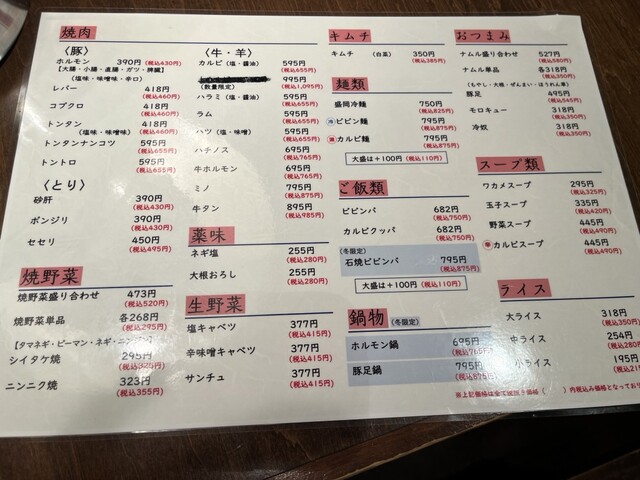 焼肉
〈豚〉
ホルモン 390円(税込430円)
【大腸・小腸・直腸・ガツ・脾臓】
(塩味・味噌味・辛口)
レバー 418円
(税込460円)
コブクロ 418円
(税込460円)
トンタン 418円
(塩味・味噌味) (税込460円)
トンタンナンコツ 595円
(税込655円)
トントロ 595円
(税込655円)
〈とり〉
砂肝 390円
(税込430円)
ボンジリ 390円
(税込430円)
セセリ 450円
(税込495円)
焼野菜
焼野菜盛り合わせ 473円
(税込520円)
焼野菜単品 各268円
(税込295円)
【タマネギ・ピーマン・ネギ・ニン
シイタケ焼 295円
ニンニク焼 323円
(税込355円)
〈牛・羊〉
カルビ(塩・醤油) 595円
(税込655円)
995円
(数量限定) (税込1,095円)
ハラミ(塩・醤油) 595円
(税込655円)
ラム 595円
(税込655円)
ハツ(塩・味噌) 595円
(税込655円)
ハチノス 695円
(税込765円)
牛ホルモン 695円
(税込765円)
ミノ 795円
(税込875円)
牛タン 895円
(税込985円)
薬味
ネギ塩 255円
(税込280円)
大根おろし 255円
(税込280円)
生野菜
塩キャベツ 377円
(税込415円)
辛味噌キャベツ 377円
(税込415円)
サンチュ 377円
(税込415円)
キムチ
キムチ (白菜) 350円
(税込385円)
麺類
盛岡冷麺 750円
(税込825円)
ビビン麺 795円
(税込875円)
カルビ麺 795円
(税込875円)
大盛は+100円(税込110円)
ご飯類
ビビンバ 682円
(税込750円)
カルビクッパ 682円
(税込750円)
(冬限定)
石焼ビビンバ 795円
(税込875円)
大盛は+100円(税込110円)
鍋物(冬限定)
ホルモン鍋 695円
(税込765円)
豚足鍋 795円
(税込875円)
おつまみ
ナムル盛り合わせ 527円
(税込580円)
ナムル単品 各318円
(税込350円)
(もやし・大根・ぜんまい・ほうれん草)
豚足 495円
(税込545円)
モロキュー 318円
(税込350円)
冷奴 318円
(税込350円)
スープ類
ワカメスープ 295円
(税込325円)
玉子スープ 335円
(税込420円)
野菜スープ 445円
(税込490円)
カルビスープ 445円
(税込490円)
ライス
大ライス 318円
(税込350円)
中ライス 254円
(税込280円
小ライス 195円
(税込21
※上記価格は全て税抜き価格( )内税込み価格となってお